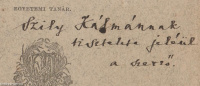 EGYETEMI TANÁR.
Szily Kálmánnak
tisztelete jeléül
a szerző.